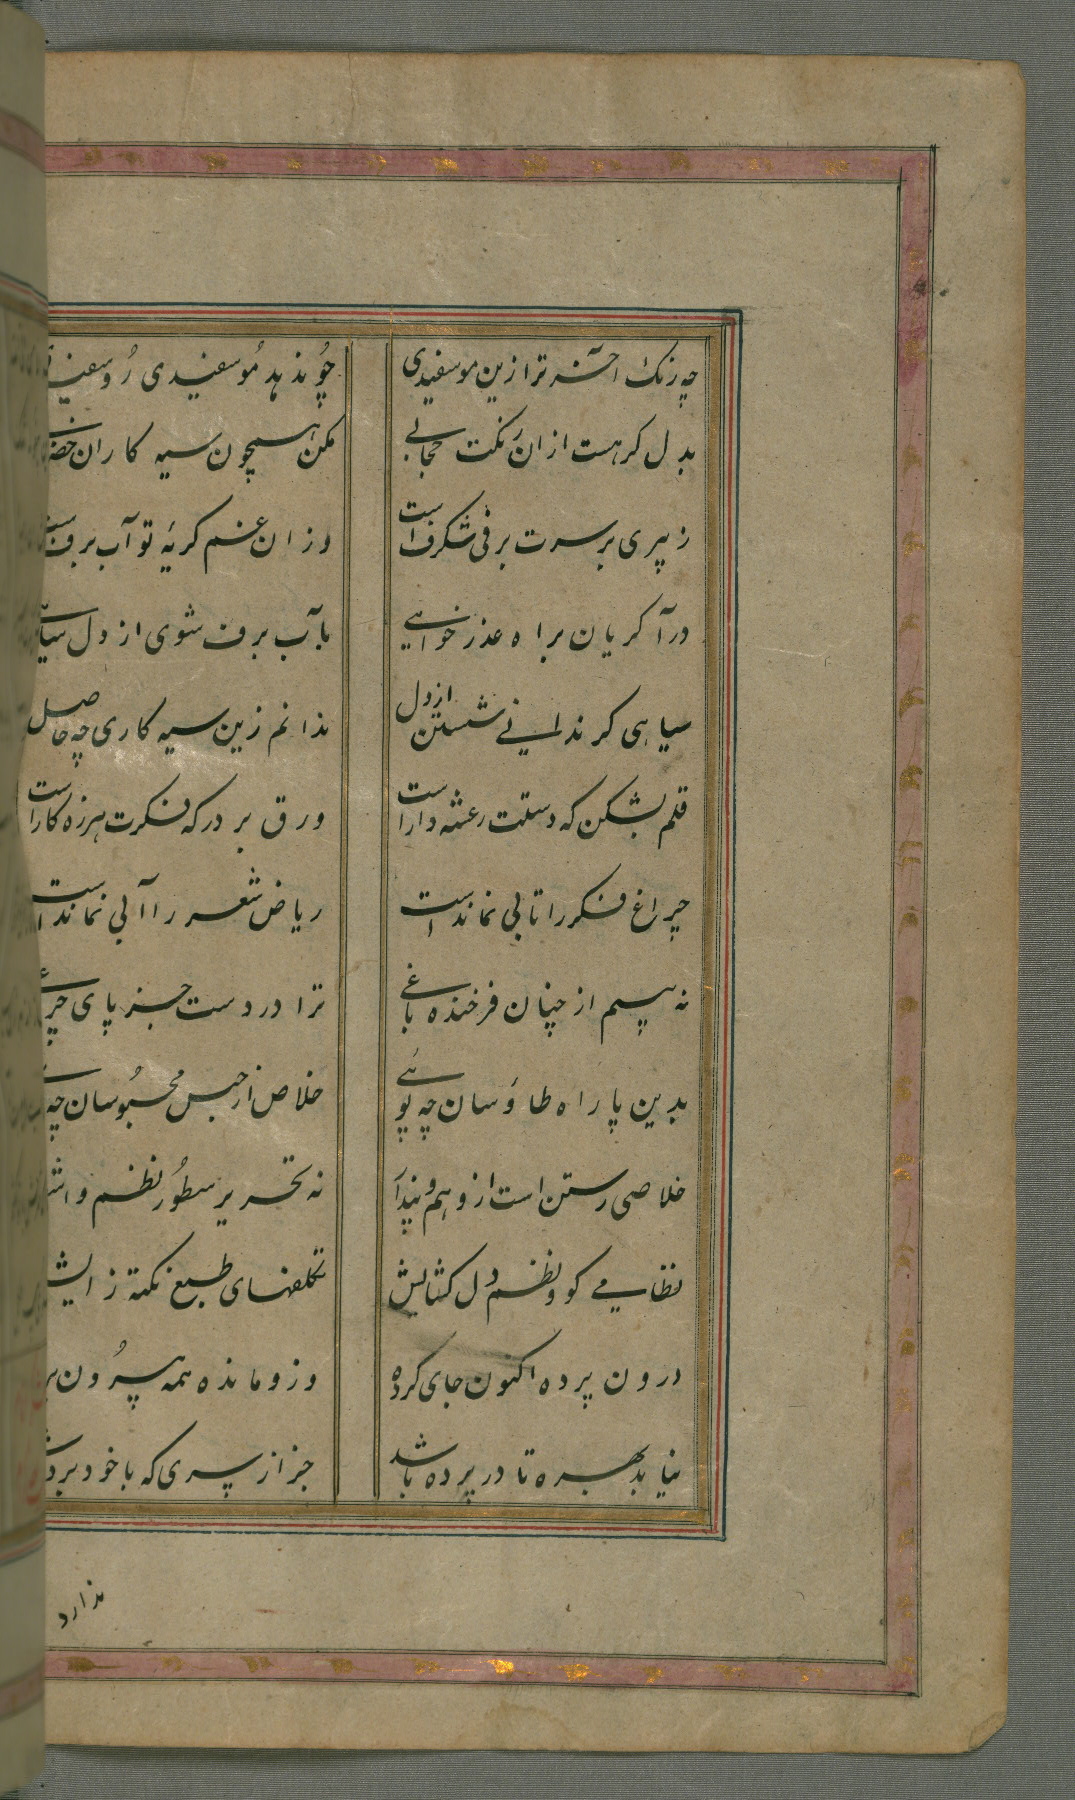 چه رنگ آخر ترا زین مو سفیدی چو ندهد مو سفیدی رو سفیدی
بدل گر هست ازان رنگت حجابی مکن همچون سیه کاران
ز پیری بر سرت برفی شگرف است وزان غم گریهٔ تو آب برف است
درآ گریان براه عذر خواهی بآب برف شوی از دل سیاهی
سیاهی گر ندانی شستن از دل ندانم زین سیه کاری چه حاصل
قلم بشکن که دستت رعشه دار است ورق بر در که فکرت هرزه کار است
چراغ فکر را تابی نمانده است ریاض شعر را آبی نمانده است
نه بینم از چنان فرخنده باغی ترا در دست جز پای
بدین پا راه طاوسان چه پوئی خلاص از حبس محبوسان چه
خلاصی رستن است از وهم و پندار نه تحریر سطور نظم و
نظامی کو و نظم دل گشایش تکلفهای طبع نکته زایش
درون پرده اکنون جای کرده وزو مانده همه بیرون
نیابد بهره تا در پرده باشد جز از سری که با خود برده
ندارد